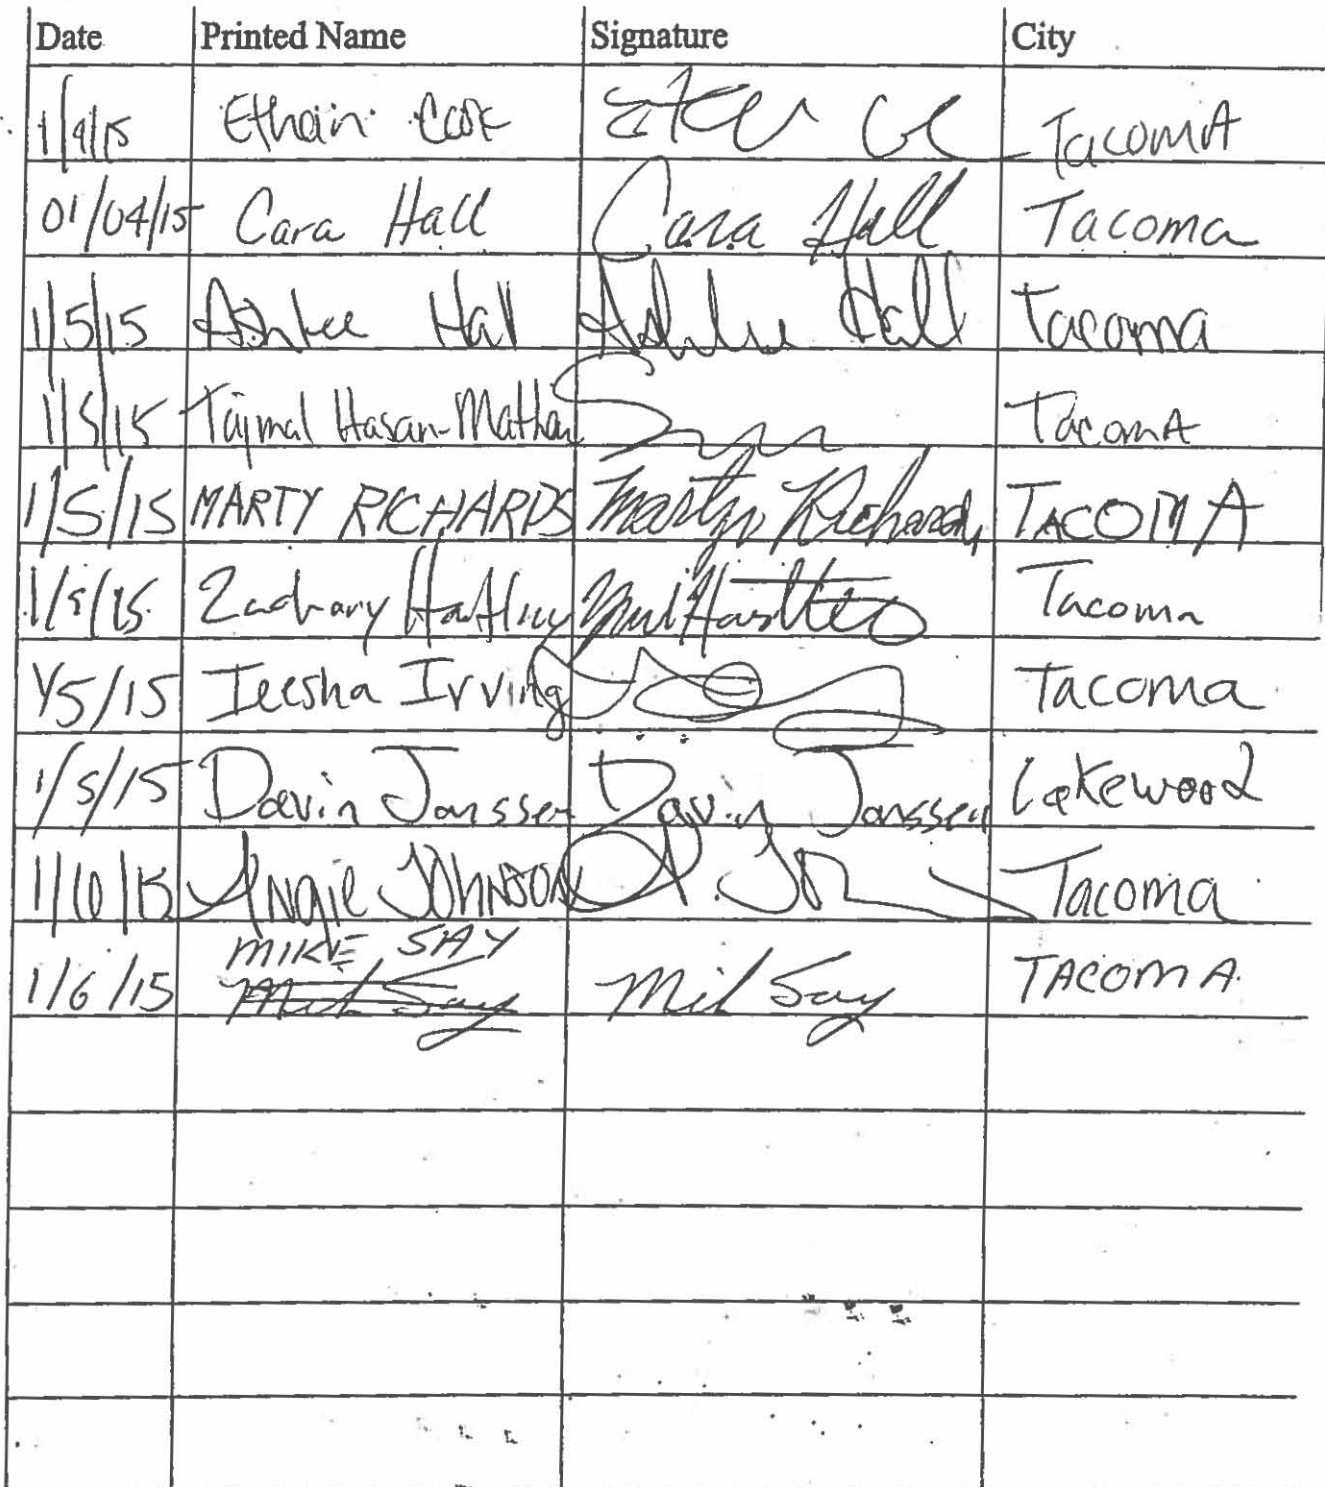 Date Printed Name Signature City
1/4/15 Ethan Cook TacomA
01/04/15 Cara Hall Cara Hall Tacoma
1/5/15 Ashlee Hall Ashlee Hall Tacoma
1/5/15 Tajmal Hasan-Mathen TacomA
1/5/15 MARTY RICHARDS Marty Richards TACOMA
1/5/15 Zachary Tacoma
1/5/15 Ieesha Irving Tacoma
1/5/15 Davin Janssen Davin Janssen Lakewood
1/6/15 Angie Johnson A. Jo Tacoma
MIKE SAY
1/6/15 Mik Say Mik Say TACOMA